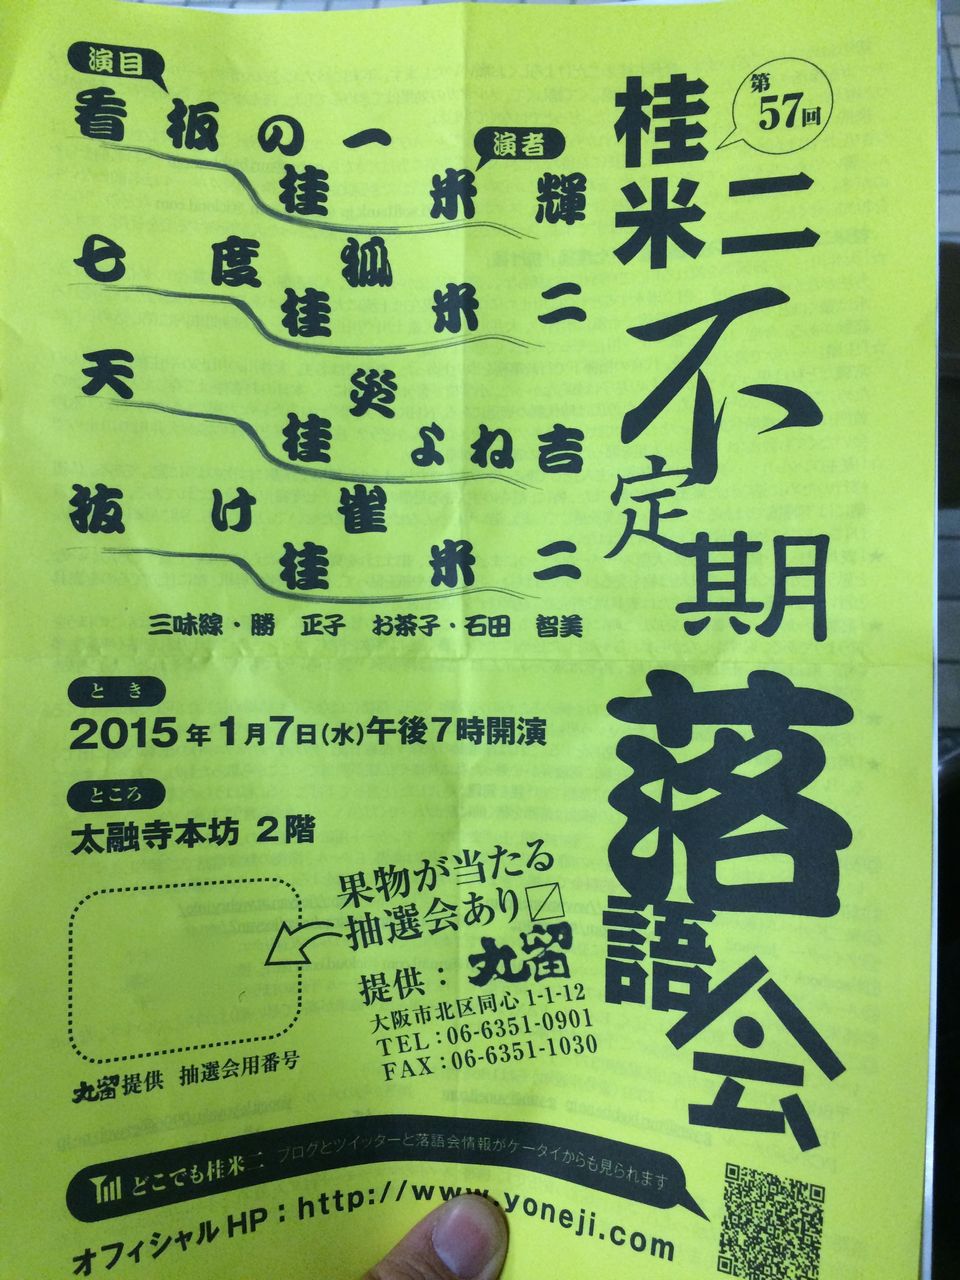 第57回
桂米二
不定期
落語会
演目
看板の一
演者
桂 米輝
七度狐
桂 米二
天災
桂 よね吉
抜け雀
桂 米二
三味線・勝 正子 お茶子・石田 智美
とき
2015年1月7日(水)午後7時開演
ところ
太融寺本坊 2階
果物が当たる
抽選会あり
提供：丸留
大阪市北区同心 1-1-12
TEL：06-6351-0901
FAX：06-6351-1030
丸留提供 抽選会用番号
どこでも桂米二 ブログとツイッターと落語会情報がケータイからも見られます
オフィシャルHP：http://www.yoneji.com